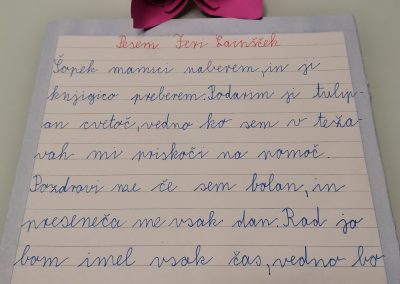 Pesem Feri Lainšček
Šopek mamici naberem, in ji
knjigico preberem. Podarim ji tulip-
an cvetoč, vedno ko sem v teža-
vah mi priskoči na pomoč.
Pozdravi me če sem bolan, in
preseneča me vsak dan. Rad jo
bom imel vsak čas, vedno bo